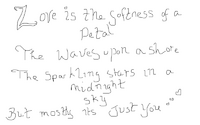 Love is the softness of a
Petal
The Waves upon a shore
The Sparkling stars in a
midnight
sky
But mostly its Just you ""